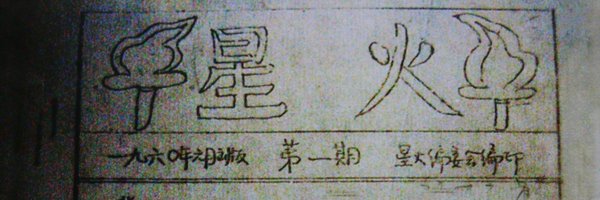 星 火
一九六〇年元月出版 第一期 星火编委会编印